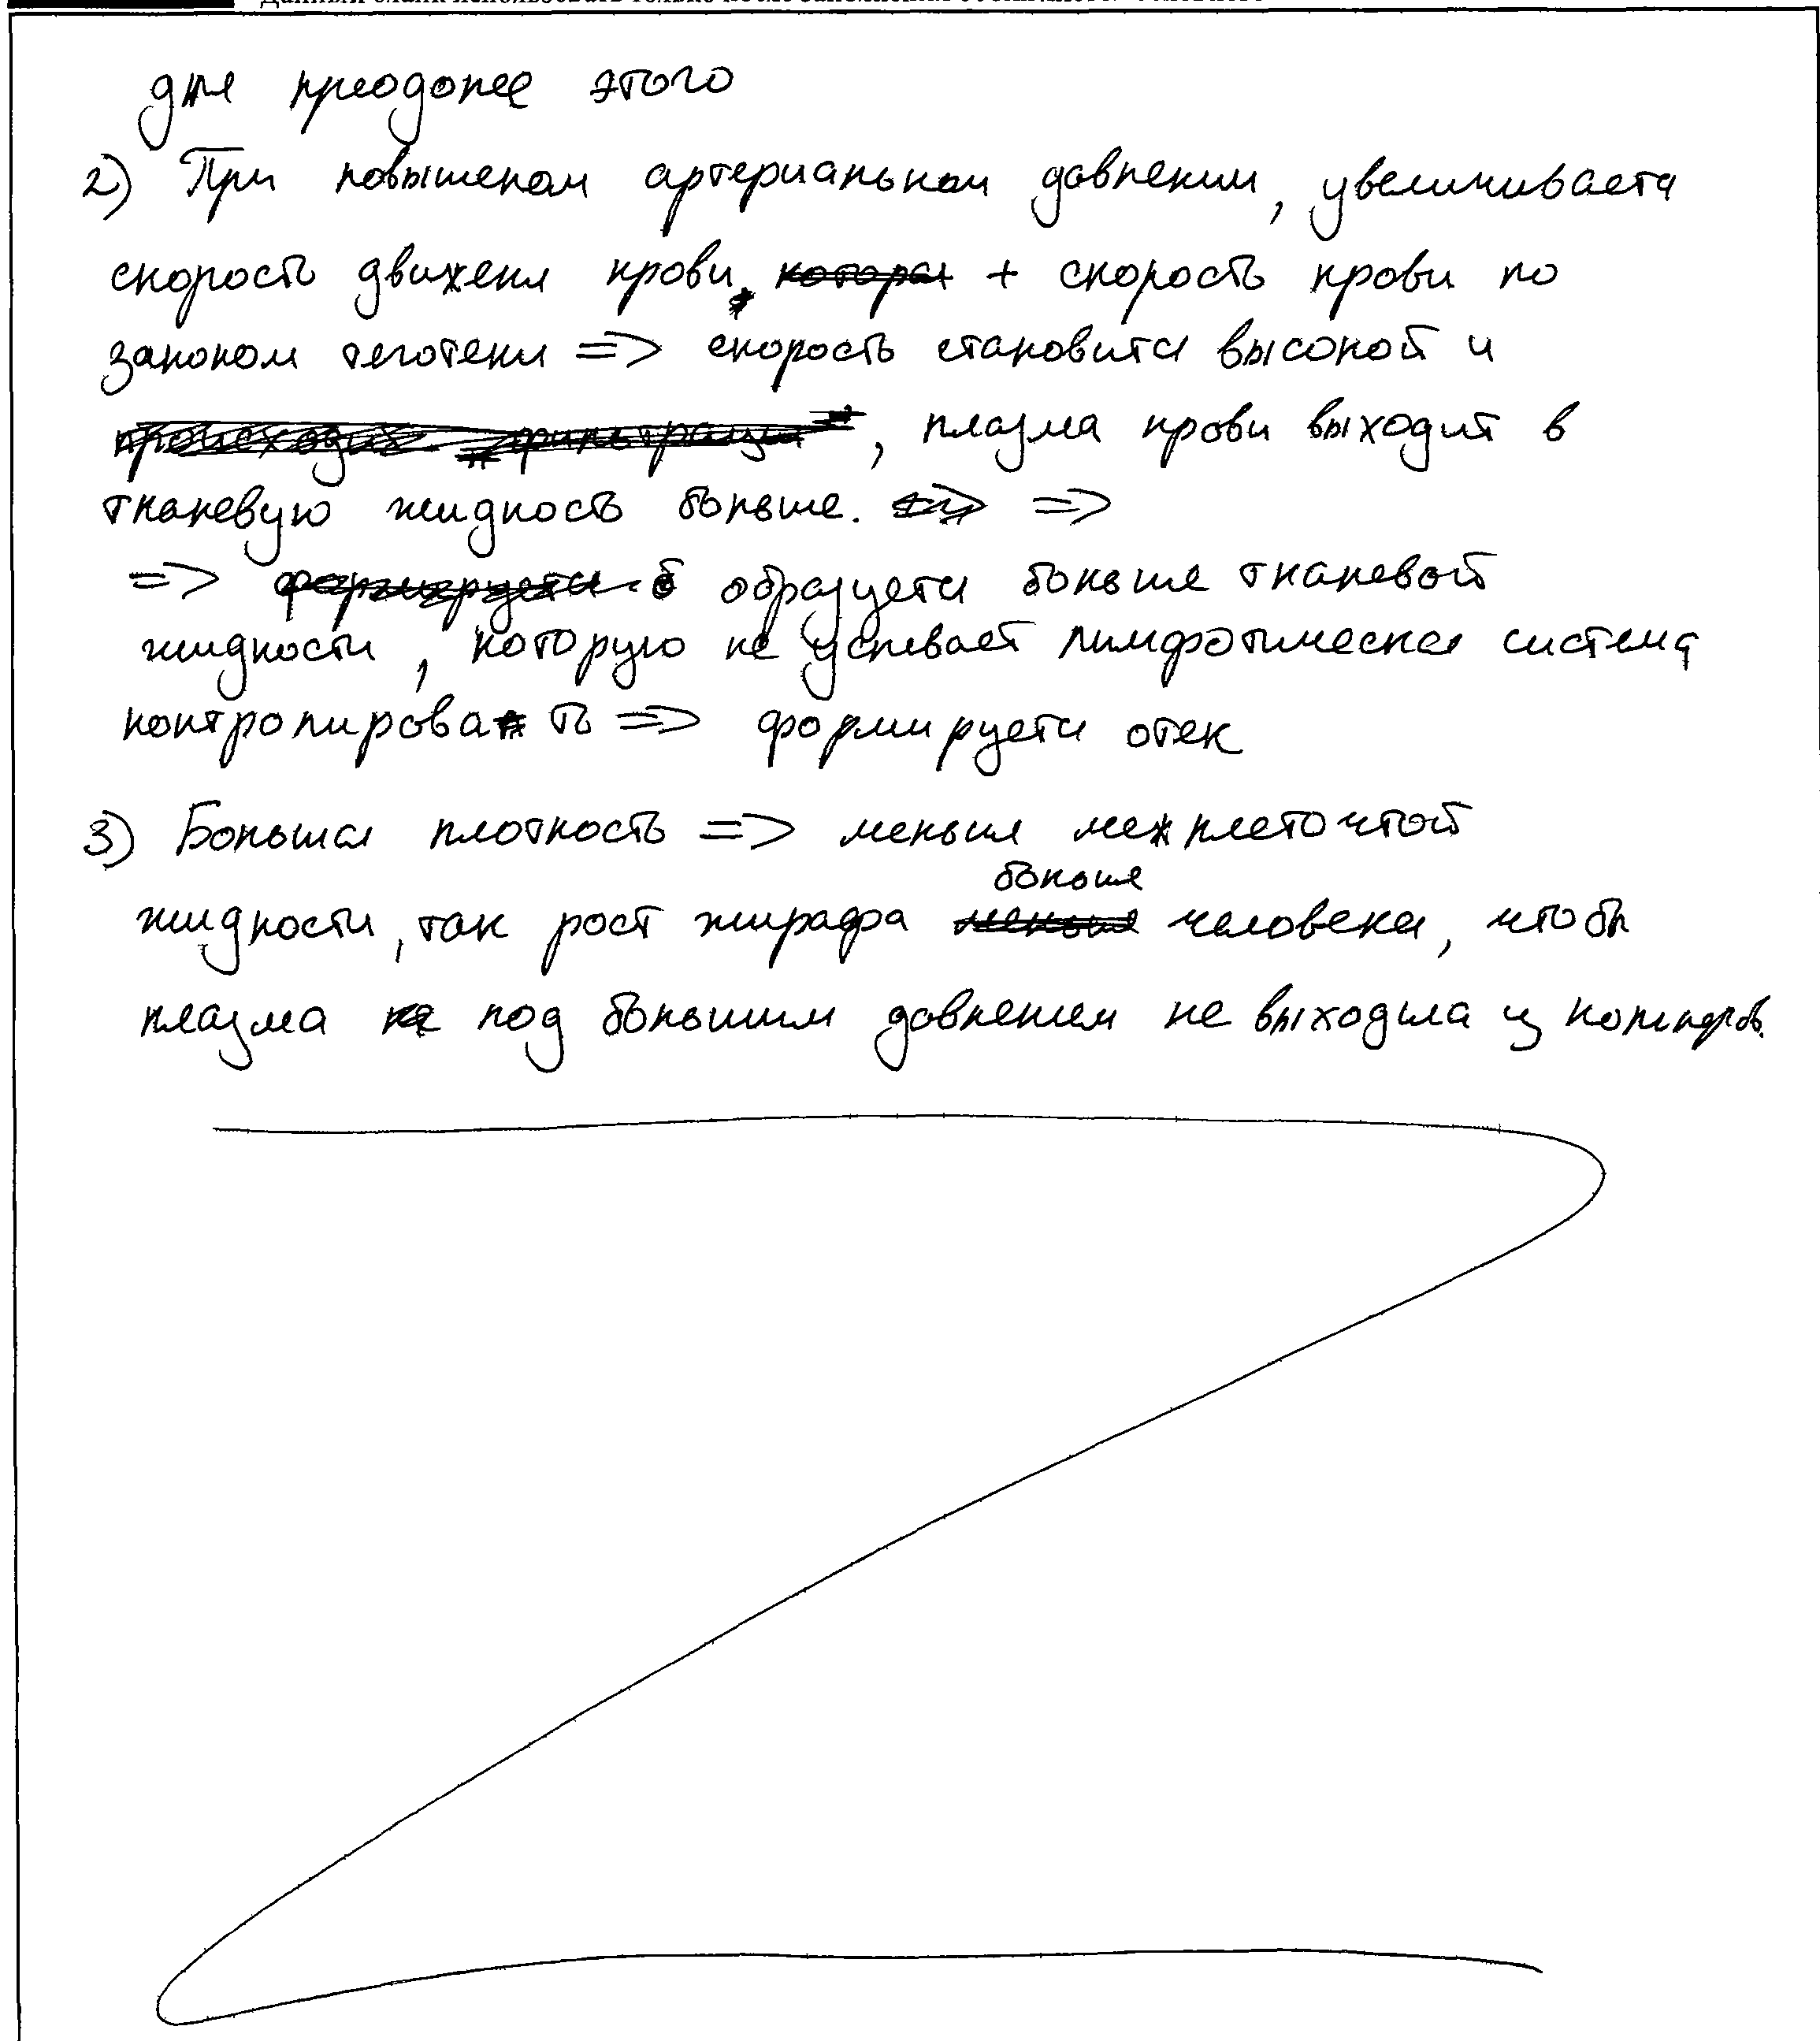 для преодоле этого
2) При повышеном артериальном давлении, увеличивается
скорость движеня крови, которая + скорость крови по
законом теготени => скорость становится высокой и
происходит фильтрация, плазма крови выходит в
тканевую жидкость больше. =>
=> формируется б образуется больше тканевой
жидкости, которую не успевает лимфотическая система
контролировать => формируется отек
3) Большая плотность => меньше межклеточтой
больше
жидкости, так рост жирафа меньше человека, чтобы
плазма не под большим давлением не выходила из